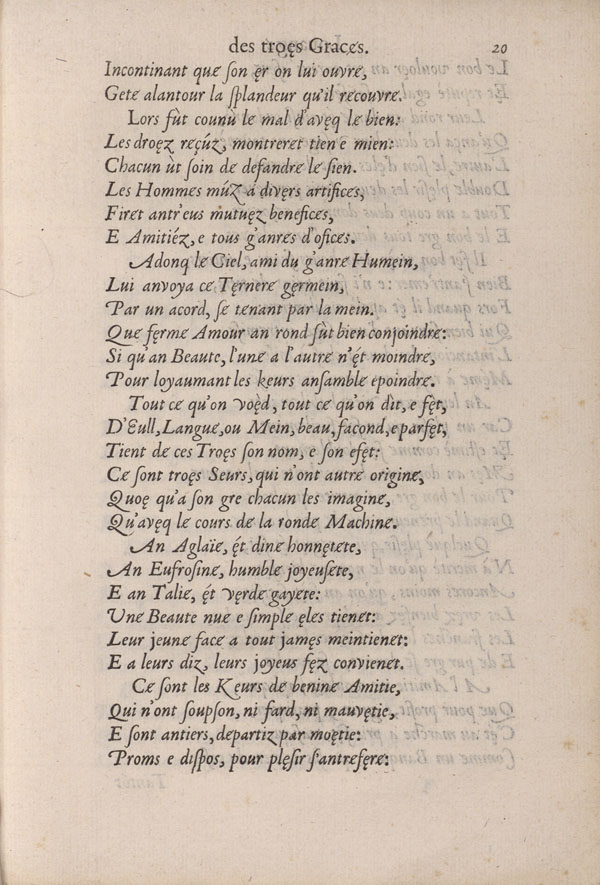 des troęs Graces. 20
Incontinant que ſon ęr on lui ouvre,
Gete alantour la ſplandeur qu'il recouvre.
Lors fùt counù le mal d'avęq le bien:
Les droęz reçúz, montreret tien e mien:
Chacun ùt ſoin de defandre le ſien.
Les Hommes múz á divers artifices,
Firet antr'eus mutuęz benefices,
E Amitiéz, e tous g'anres d'ofices.
Adonq le Ciel, ami du g'anre Humein,
Lui anvoya ce Tęrnere gęrmein,
Par un acord, ſe tenant par la mein.
Que fęrme Amour an rond ſùt bien conjoindre:
Si qu'an Beaute, l'une a l'autre n'ét moindre,
Pour loyaumant les keurs anſamble epoindre.
Tout ce qu'on voęd, tout ce qu'on dìt, e fęt,
D'Eull, Langue, ou Mein, beau, facond, e parfęt,
Tient de ces Troęs ſon nom, e ſon efęt:
Ce ſont troęs Seurs, qui n'ont autre origine,
Quoę qu'a ſon gre chacun les imagine,
Qu'avęq le cours de la ronde Machine.
An Aglaïe, ét dine honnętete,
An Eufroſine, humble joyeuſete,
E an Talie, ét vęrde gayete:
Une Beaute nue e ſimple ęles tienet:
Leur jeune face a tout jamęs meintienet:
E a leurs diz, leurs joyeus fęz convienet.
Ce ſont les Keurs de benine Amitie,
Qui n'ont ſoupſon, ni fard, ni mauvętie,
E ſont antiers, departiz par moętie:
Proms e diſpos, pour plęſir ſ'antrefęre: